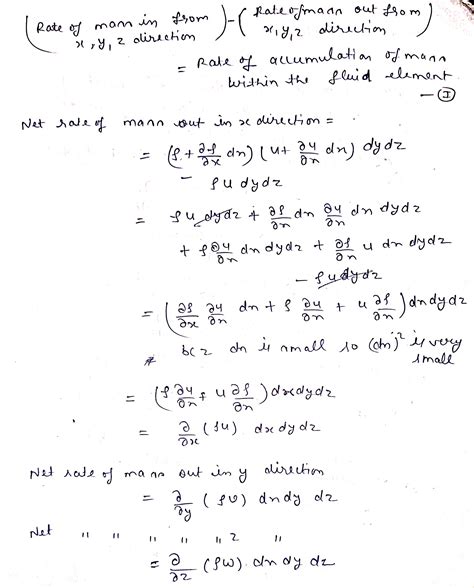 (Rate of mass in from x, y, z direction) - (Rate of mass out from x, y, z direction)
= Rate of accumulation of mass
within the fluid element
— Ⓘ
Net rate of mass out in x direction =
= (ρ + ∂ρ/∂x dx) (u + ∂u/∂x dx) dy dz
− ρu dy dz
= ρu dy dz + ∂ρ/∂x dx ∂u/∂x dx dy dz
+ ρ ∂u/∂x dx dy dz + ∂ρ/∂x u dx dy dz
− ρu dy dz
= (∂ρ/∂x ∂u/∂x dx + ρ ∂u/∂x + u ∂ρ/∂x) dx dy dz
bcz dx is small so (dx)² is very
small
= (ρ ∂u/∂x + u ∂ρ/∂x) dx dy dz
= ∂/∂x (ρu) dx dy dz
Net rate of mass out in y direction
= ∂/∂y (ρv) dx dy dz
Net " " " " " z "
= ∂/∂z (ρw) . dx dy dz